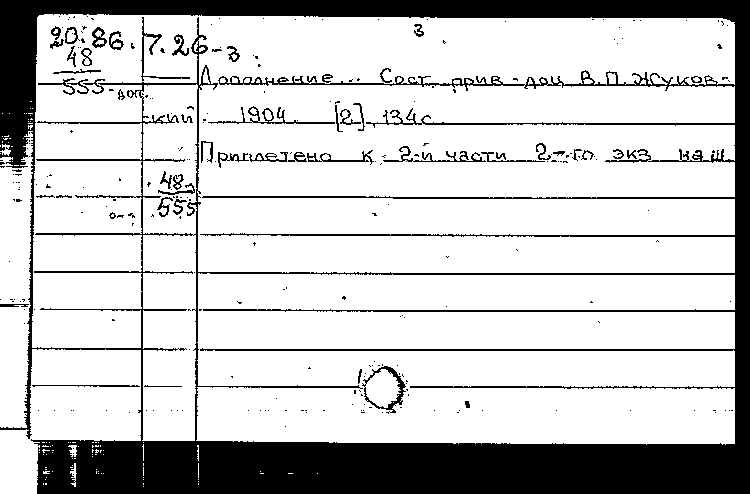 3
20.86.7.26-3
48
555-доп.
Дополнение... Сост. прив-доц. В.П. Жуков-
ский. 1904. [2], 134с.
Приплетено к 2-й части 2-го экз наш.
48
555